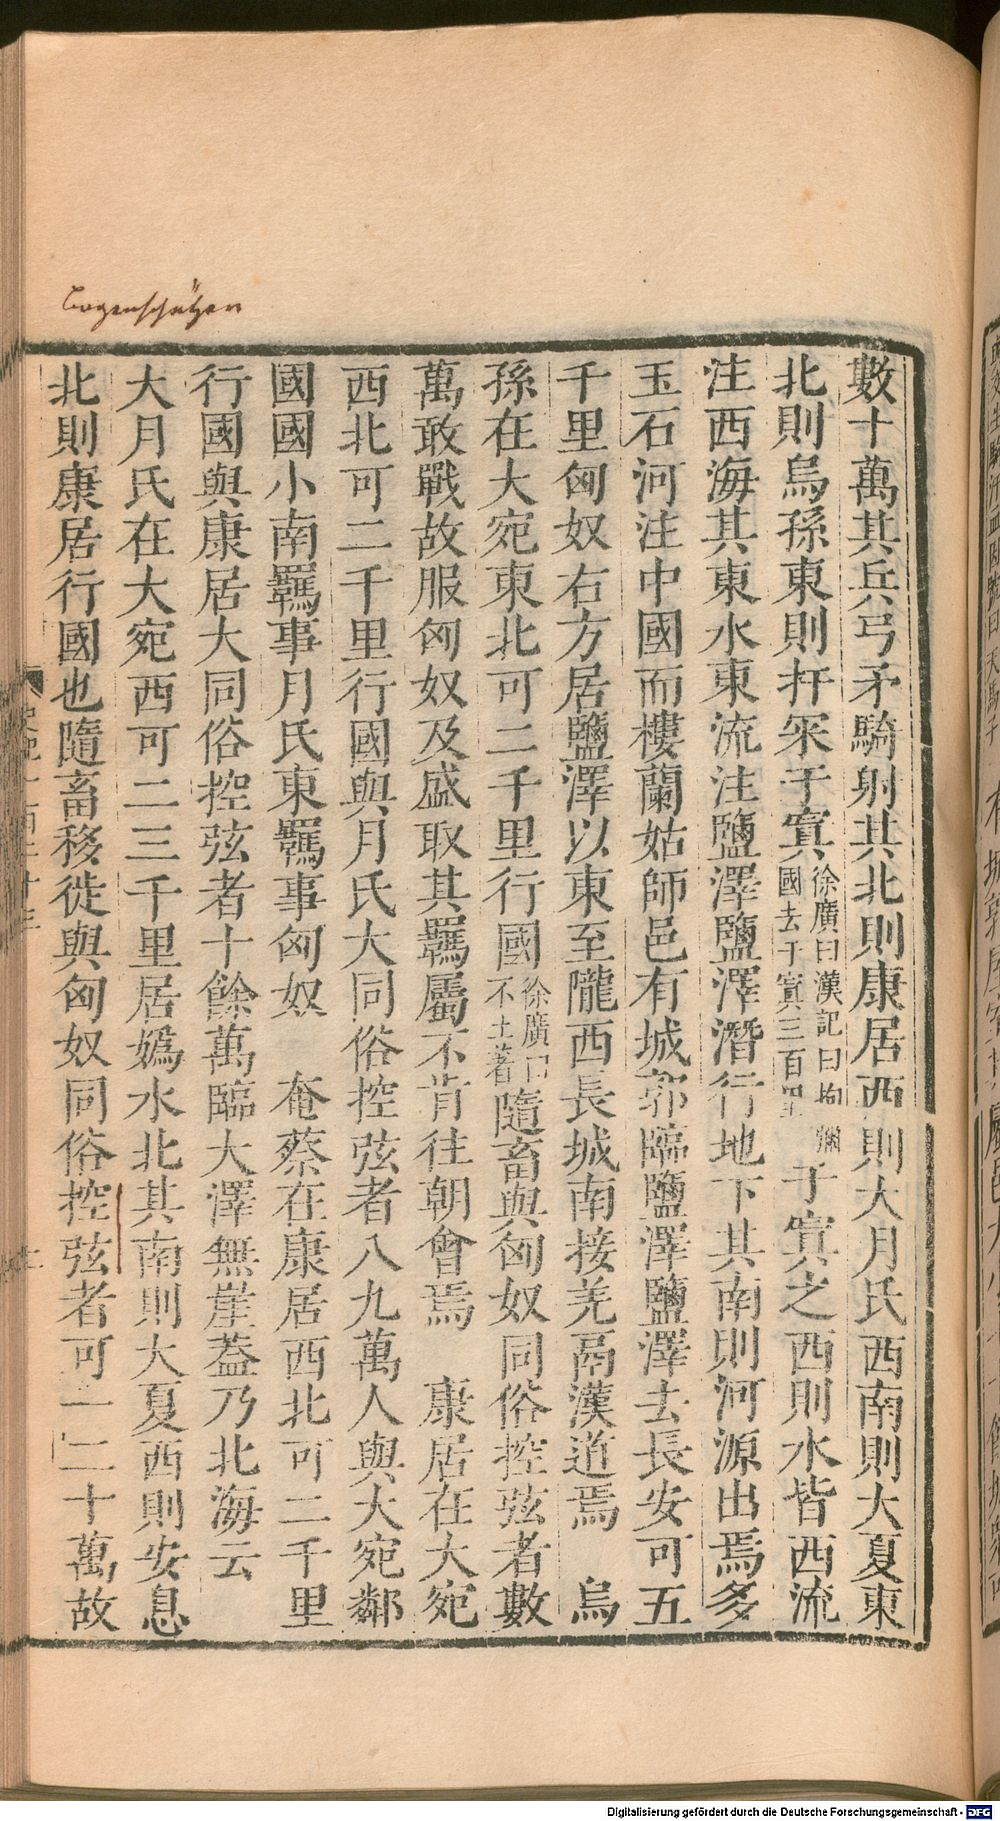 Bogenschützen
數十萬其兵弓矛騎射其北則康居西則大月氏西南則大夏東
北則烏孫東則扞冞于窴徐廣曰漢記曰拘彌國去于窴三百里于窴之西則水皆西流
注西海其東水東流注鹽澤鹽澤潛行地下其南則河源出焉多
玉石河注中國而樓蘭姑師邑有城郭臨鹽澤鹽澤去長安可五
千里匈奴右方居鹽澤以東至隴西長城南接羌鬲漢道焉 烏
孫在大宛東北可二千里行國徐廣曰不土著隨畜與匈奴同俗控弦者數
萬敢戰故服匈奴及盛取其羈屬不肯往朝會焉 康居在大宛
西北可二千里行國與月氏大同俗控弦者八九萬人與大宛鄰
國國小南羈事月氏東羈事匈奴 奄蔡在康居西北可二千里
行國與康居大同俗控弦者十餘萬臨大澤無崖蓋乃北海云
大月氏在大宛西可二三千里居嬀水北其南則大夏西則安息
北則康居行國也隨畜移徙與匈奴同俗控弦者可一二十萬故
Digitalisierung gefördert durch die Deutsche Forschungsgemeinschaft - DFG